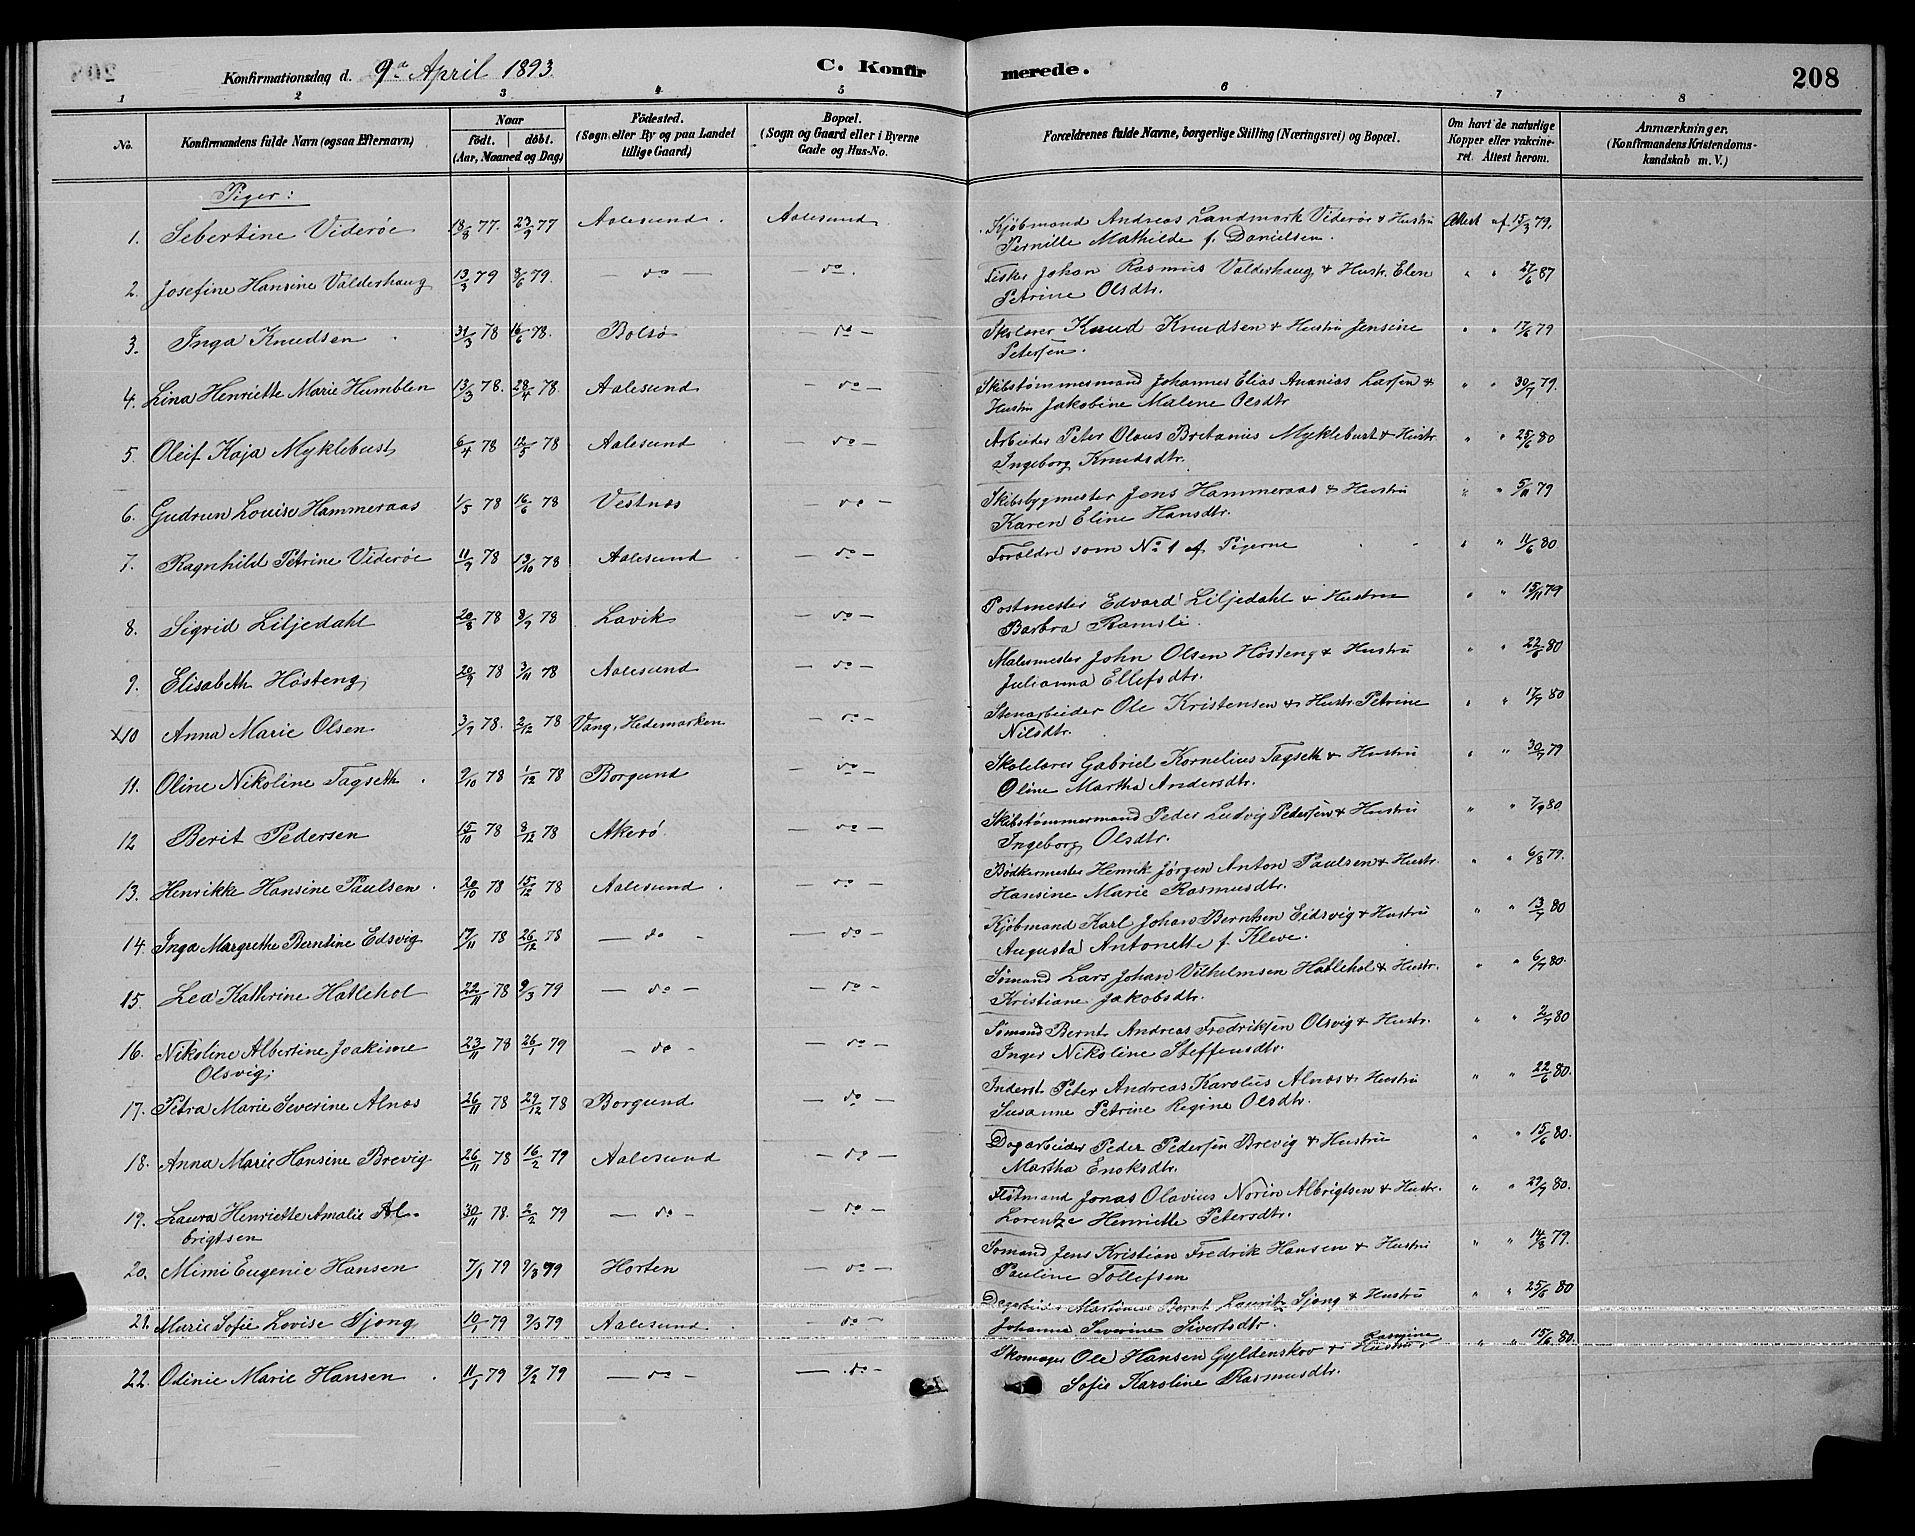 Konfirmationsdag d. 9de April 1893. C. Konfirmerede. 208
1 2 3 4 5 6 7 8
No. Konfirmandens fulde Navn (ogsaa Efternavn) Naar født. døbt. (Aar, Maaned og Dag) Fødested. (Sogn eller By og paa Landet tillige Gaard) Bopæl. (Sogn og Gaard eller i Byerne Gade og Hus-No. Forældrenes fulde Navne, borgerlige Stilling (Næringsvei) og Bopæl. Om havt de naturlige Kopper eller vakcineret. Attest herom. Anmærkninger. (Konfirmandens Kristendomskundskab m. V.)
Piger:
1. Sebertine Viderøe 18/8 77. 23/9 77 Aalesund. Aalesund Kjøbmand Andreas Landmark Viderøe & Hustru Attest af 15/3 79.
Pernille Mathilde f. Danielsen.
2. Josefine Hansine Valderhaug 13/3 79 8/6 79. — do — — do. Fisker Johan Rasmus Valderhaug & Hustr. Elen " " 27/6 87
Petrine Olsdtr.
3. Inga Knudsen 31/3 78 16/6 78. Bolsø — do — Skolelærer Knud Knudsen & Hustru Jensine " " 17/6 79
Petersen.
4. Lina Henriette Marie Humblen 13/3 78. 28/4 78 Aalesund — do — Skibstømmermand Johannes Elias Ananias Larsen & " " 30/7 79.
Hustru Jakobine Malene Olsdtr
5. Oleif Kaja Myklebust 6/4 78 12/5 78 Aalesund — do — Arbeider Peter Olaus Bretanius Myklebust & Hustr. " " 25/6 80
Ingeborg Knudsdtr.
6. Gudrun Louise Hammeraas 1/5 78 16/6 78 Vestnæs — do — Skibsbygmester Jens Hammeraas & Hustru " " 5/11 79
Karen Eline Hansdtr.
7. Ragnhild Petrine Viderøe 11/9 78 13/10 78 Aalesund — do — Forældre som No 1 af Pigerne " " 11/6 80
8. Sigrid Liljedahl 20/8 78 8/9 78 Lavik — do — Postmester Edvard Liljedahl & Hustru " " 15/11 79
Barbra Ramsli.
9. Elisabeth Høsteng 20/9 78 3/11 78 Aalesund — do — Malermester John Olsen Høsteng & Hustru " " 22/6 80
Julianna Ellefsdtr.
x10 Anna Marie Olsen 3/9 78. 2/12 78 Vang, Hedemarken — do — Stenarbeider Ole Kristensen & Hustr. Petrine " " 17/7 80
Nilsdtr.
11. Oline Nikoline Tagseth 9/10 78 1/12 78 Borgund — do — Skolelærer Gabriel Kornelius Tagseth & Hustru " " 30/7 79
Oline Martha Andersdtr.
12 Berit Pedersen 15/10 78 8/12 78 Akerø. — do — Skibstømmermand Peder Ludvig Pedersen & Hustru " " 7/9 80
Ingeborg Olsdtr.
13. Henrikke Hansine Paulsen 20/10 78 15/12 78 Aalesund — do — Bødkermester Henrik Jørgen Anton Paulsen & Hustr. " " 6/8 79.
Hansine Marie Rasmusdtr.
14. Inga Margrethe Berntine Edsvig 17/11 78 26/12 78 — do — — do — Kjøbmand Karl Johan Berntsen Eidsvig & Hustru " " 13/7 80
Augusta Antonette f. Kleve.
15. Lea Kathrine Hatlehol 22/11 78 9/3 79 — do — — do — Sømand Lars Johan Vilhelmsen Hatlehol & Hustr. " " 6/7 80.
Kristiane Jakobsdtr.
16. Nikoline Albertine Joakime 23/11 78 26/1 79 — do — — do — Sømand Bernt Andreas Fredriksen Olsvig & Hustr. " " 2/7 80
Olsvig. Inger Nikoline Steffensdtr.
17. Petra Marie Severine Alnæs 26/11 78 29/12 78 Borgund — do — Inderst. Peter Andreas Karolus Alnæs & Hustru " " 22/6 80.
Susanne Petrine Regine Olsdtr.
18. Anna Marie Hansine Brevig 26/11 78 16/2 79 Aalesund — do — Dagarbeider Peder Pedersen Brevig & Hustru " " 15/6 80.
Martha Enoksdtr.
19. Laura Henriette Amalie Al- 30/11 78. 2/2 79 — do — — do — Fløtmand Jonas Olavius Norin Albrigtsen & Hustr. " " 29/7 80.
brigtsen Lorentze Henriette Petersdtr.
20. Mimi Eugenie Hansen 7/1 79 9/3 79 Horten — do — Sømand Jens Kristian Fredrik Hansen & Hustru " " 14/8 79.
Pauline Tollefsen
21. Marie Sofie Lovise Sjong 10/1 79 9/3 79 Aalesund. — do — Dagarbeider Martinus Bernt Lauritz Sjong & Hustru " " 25/6 80
Johanne Severine Sivertsdtr.
22. Odinie Marie Hansen 11/1 79 9/2 79 — do — — do — Skomager Ole Hansen Gyldenskov & Hustru Rasmine " " 15/6 80.
Sofie Karoline Rasmusdtr.